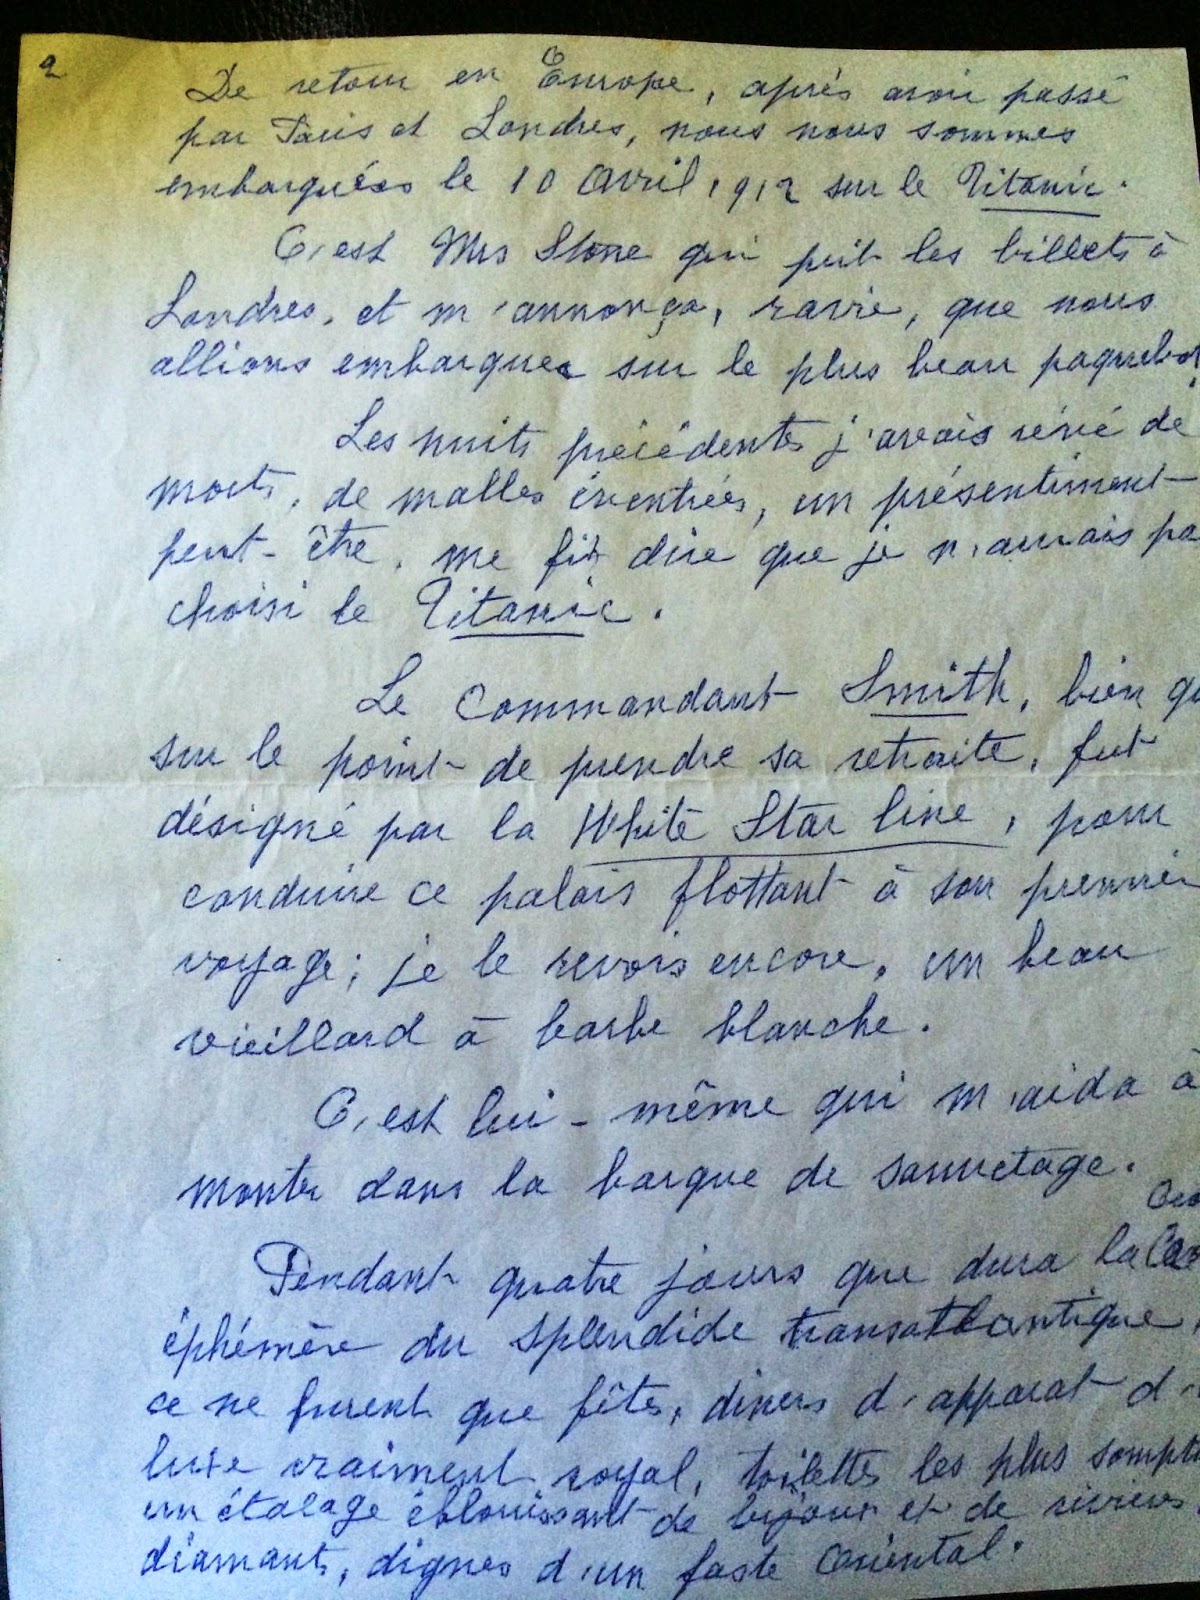 2
De retour en Europe, après avoir passé
par Paris et Londres, nous nous sommes
embarquées le 10 Avril 1912 sur le Titanic.
C'est Mrs Stone qui prit les billets à
Londres, et m'annonça, ravie, que nous
allions embarquer sur le plus beau paquebot
Les nuits précédentes j'avais rêvé de
morts, de malles éventrées, un présentiment
peut-être, me fit dire que je n'aurais pa
choisi le Titanic.
Le Commandant Smith, bien qu
sur le point de prendre sa retraite, fut
désigné par la White Star line, pour
conduire ce palais flottant à son premier
voyage; je le revois encore, un beau
vieillard à barbe blanche.
C'est lui-même qui m'aida à
monter dans la barque de sauvetage.
Pendant quatre jours que dura la
éphémère du splendide transatlantique,
ce ne furent que fêtes, diners d'apparat d
luxe vraiment royal, toilettes les plus sompt
un étalage éblouissant de bijoux et de rivières
diamants, dignes d'un faste Oriental.